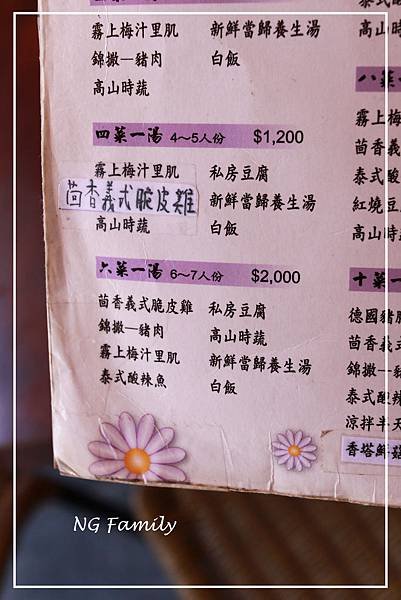 霧上梅汁里肌 新鮮當歸養生湯
錦撇一豬肉 白飯
高山時蔬
四菜一湯 4~5人份 $1,200
霧上梅汁里肌 私房豆腐
茴香義式脆皮雞 新鮮當歸養生湯
高山時蔬 白飯
六菜一湯 6~7人份 $2,000
茴香義式脆皮雞 私房豆腐
錦撇一豬肉 高山時蔬
霧上梅汁里肌 新鮮當歸養生湯
泰式酸辣魚 白飯
泰式酸
高山時
八菜一
霧上梅
茴香義
泰式酸
紅燒豆
高山時
十菜一
德國豬
茴香義式
錦撇一豬
泰式酸辣
涼拌半天
香塔鮮菇
NG Family